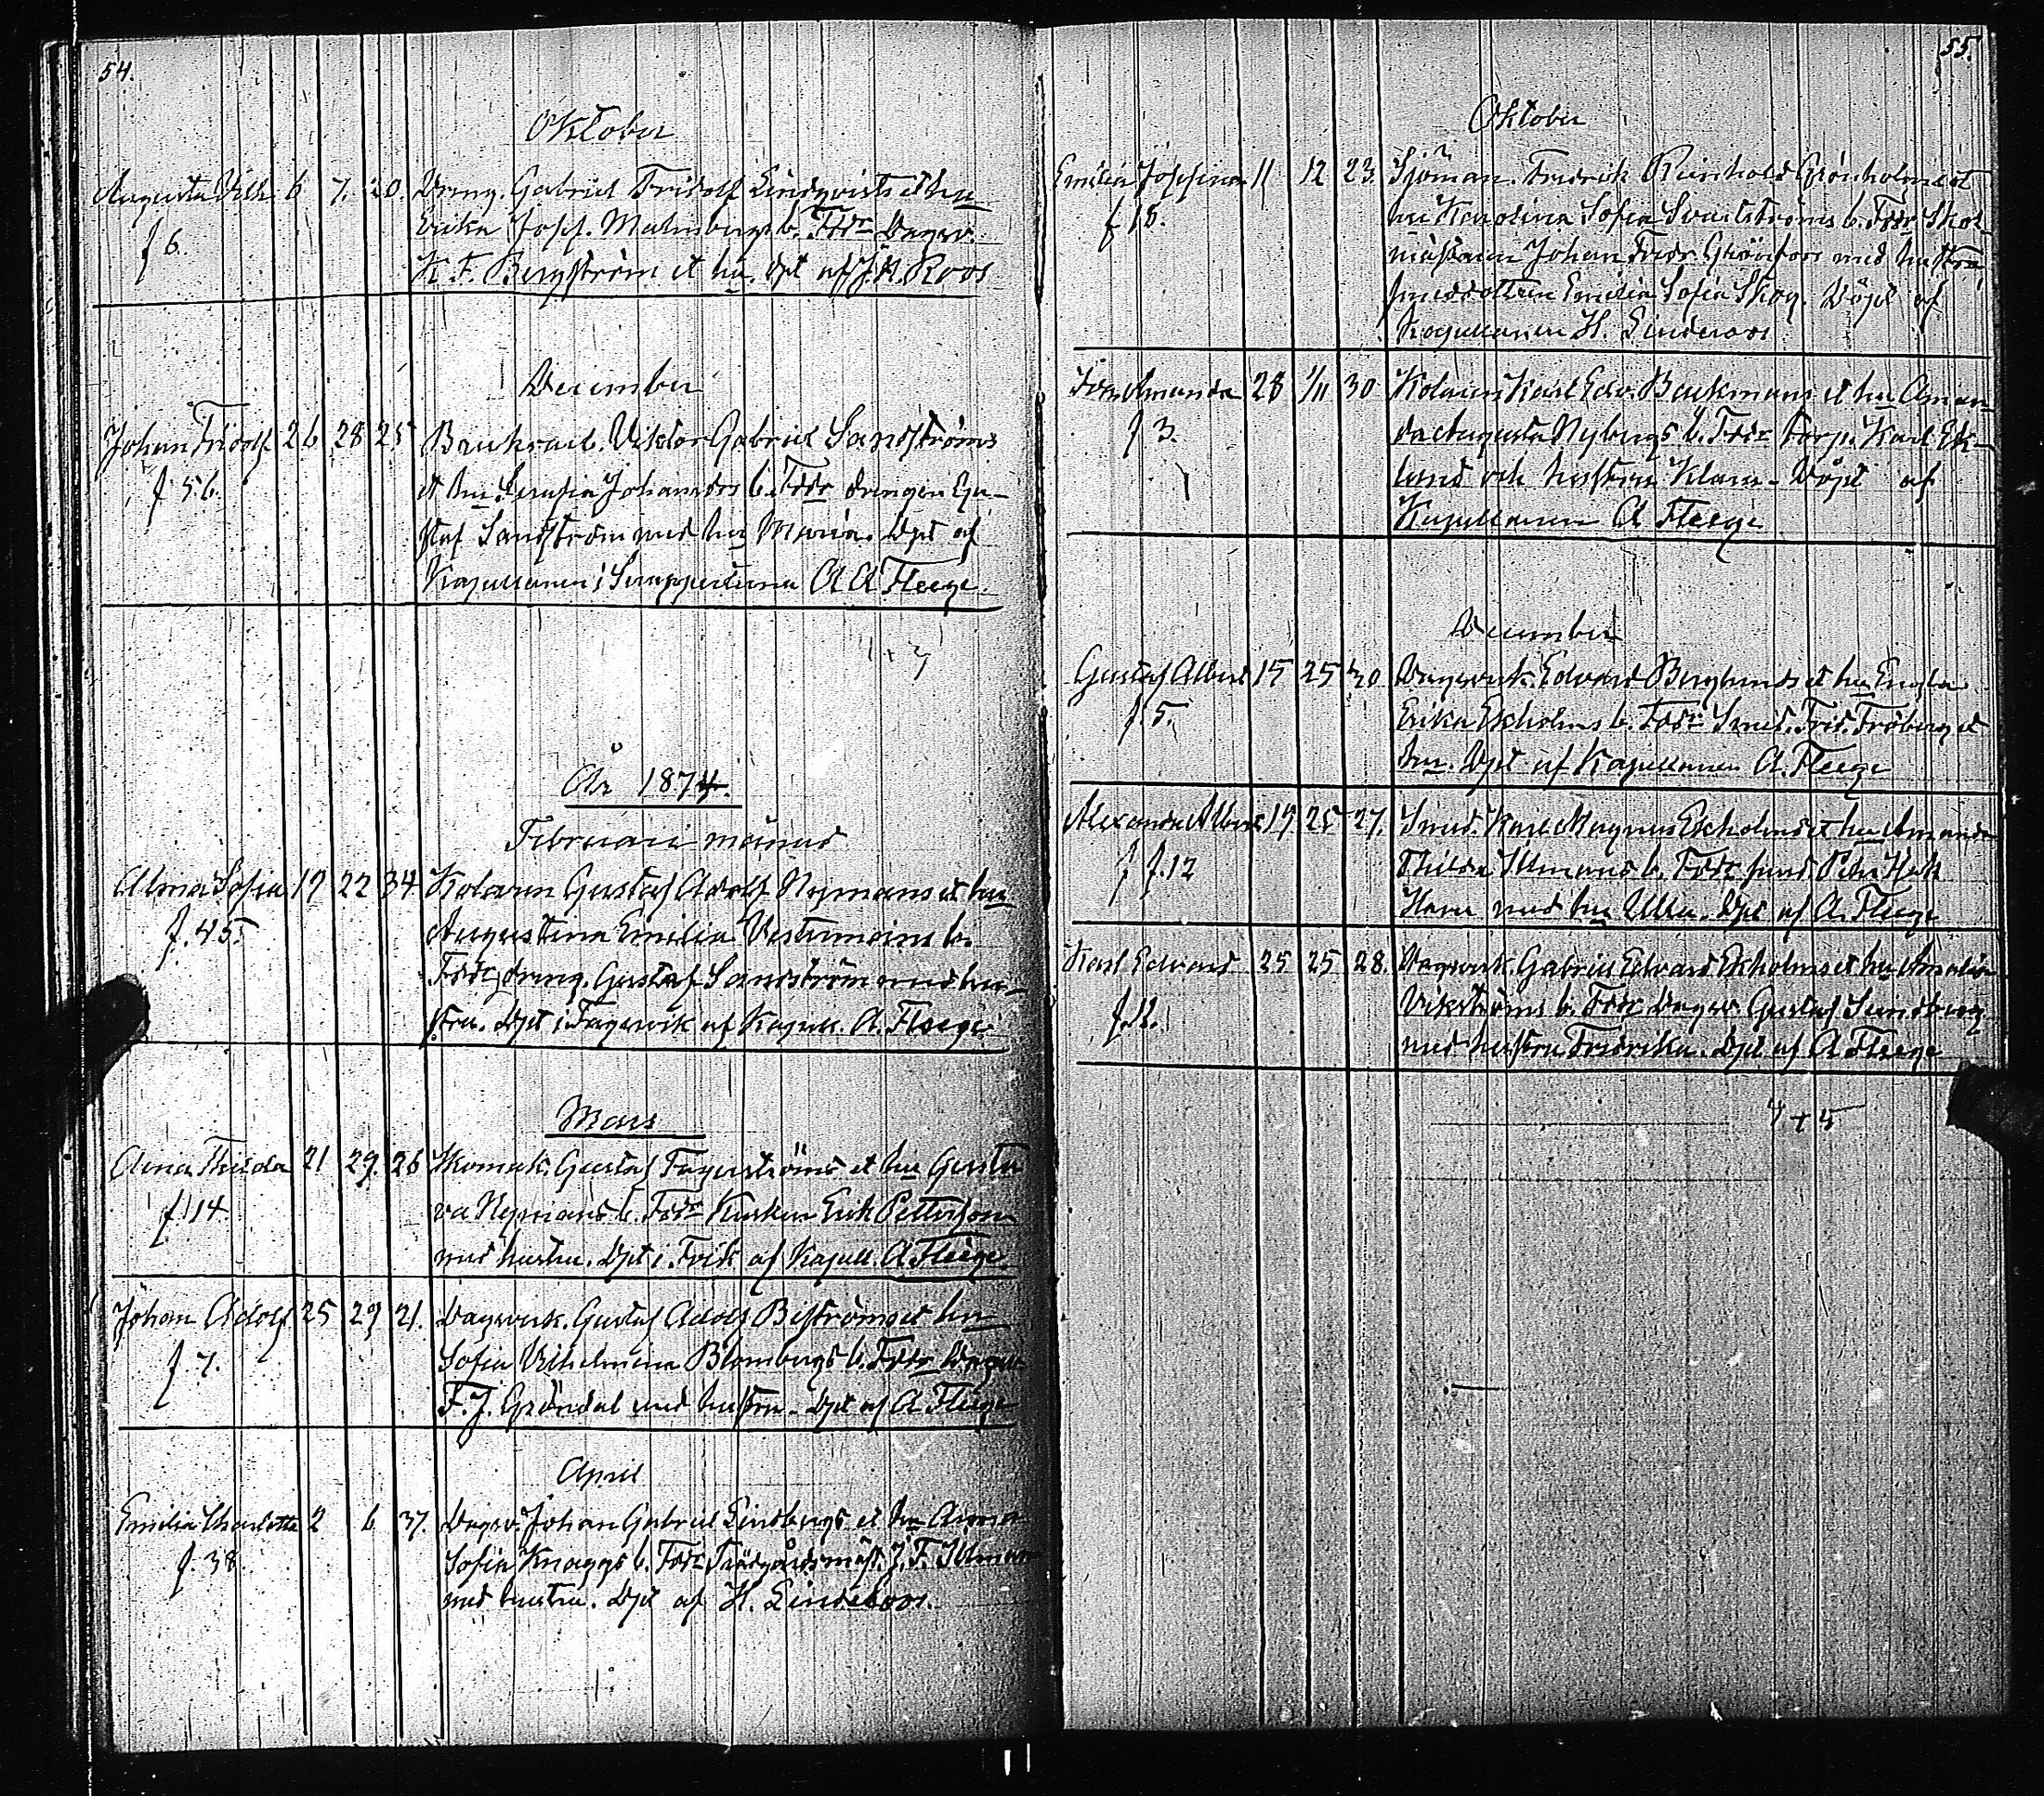 54.
Oktober
Augusta Vilh. 6 7. 20. Dräng. Gabriel Fridolf Lindqvists et hu
f 6. Erika Josef. Malmbergs b. Fdr Dagsv.
K. F. Bergström et hu. Dpt af J. A. Roos
December
Johan Fridolf 26 28 25 Bruksarb. Viktor Gabriel Sandströms
f. 56. et hu Serafia Johansdrs b. Fddr drängen Gu-
staf Sandström med hu Maria. Dpt af
Kapellanen i Snappertuna A A Fleege.
1 + 7
År 1874.
Februari månad
Alma Sofia 19 22 34 Kolaren Gustaf Adolf Nymans et hu
f. 45. Augustina Emilia b.
Fddr dräng. Gustaf Sandström med hu-
stru. Dpt i Fagervik af Kapell. A. Fleege
Mars
Alma Thilda 21 29. 26 Skomak. Gustaf Fagerströms et hu Gusta
f. 14. va Nymans b. Fddr Kusken Erik Petterson
med hustru. Dpt i Fvik af Kapell. A. Fleege.
Johan Adolf 25 29 21. Dagsverk. Gustaf Adolf Boströms et hu
f. 7. Sofia Vilhelmina Blombergs b. Fddr Dagsv
F. J. Gröndal med hustru. Dpt af A Fleege
April
Emilia Charlotta 2 6 37. Dagsv. Johan Gabriel Lindbergs et hu Anna
f. 38. Sofia Knaggs b. Fddr Trädgårdsmäst. J. F. Illman
med hustru. Dpt af H. Linderoos.
55.
Oktober
Emilia Josefina 11 12 23. Sjöman. Fredrik Reinhold Grönholms et
f 15. hu Karolina Sofia Svartströms b. Fddr Skol-
mästaren Johan Fredr. Grönfors med hustru
smeddottern Emilia Sofia Skog. Döpt af
Kapellanen H. Linderoos
Ida Amanda 28 1/11 30 Kolaren Karl Edv. Backmans et hu Aman-
f 3. da Augusta Nybergs b. Fddr Torp. Karl Ek-
lund och hustru Klara - Döpt af
Kapellanen A Fleege
December
Gustaf Albert 15 25 30 Dagsverk. Edvard Berglunds et hu Engla
f. 5. Erika Ekholms b. Fddr Smed. Frid. Fröberg et
hu. Dpt af Kapellanen A. Fleege
Alexander Albert 19 25 27. Smed. Karl Magnus Ekholms et hu Amanda
f f. 12 Thilda Illmans b. Fddr smed. Petter
med hu Ulla. Dpt af A. Fleege
Karl Edvard 25 25 28. Dagsverk. Gabriel Edvard Ekholms et hu Amalia
f. 12. Vikströms b. Fddr Dagsv. Gustaf Sundberg
med hustru Fredrika. Dpt af A Fleege
7 + 5